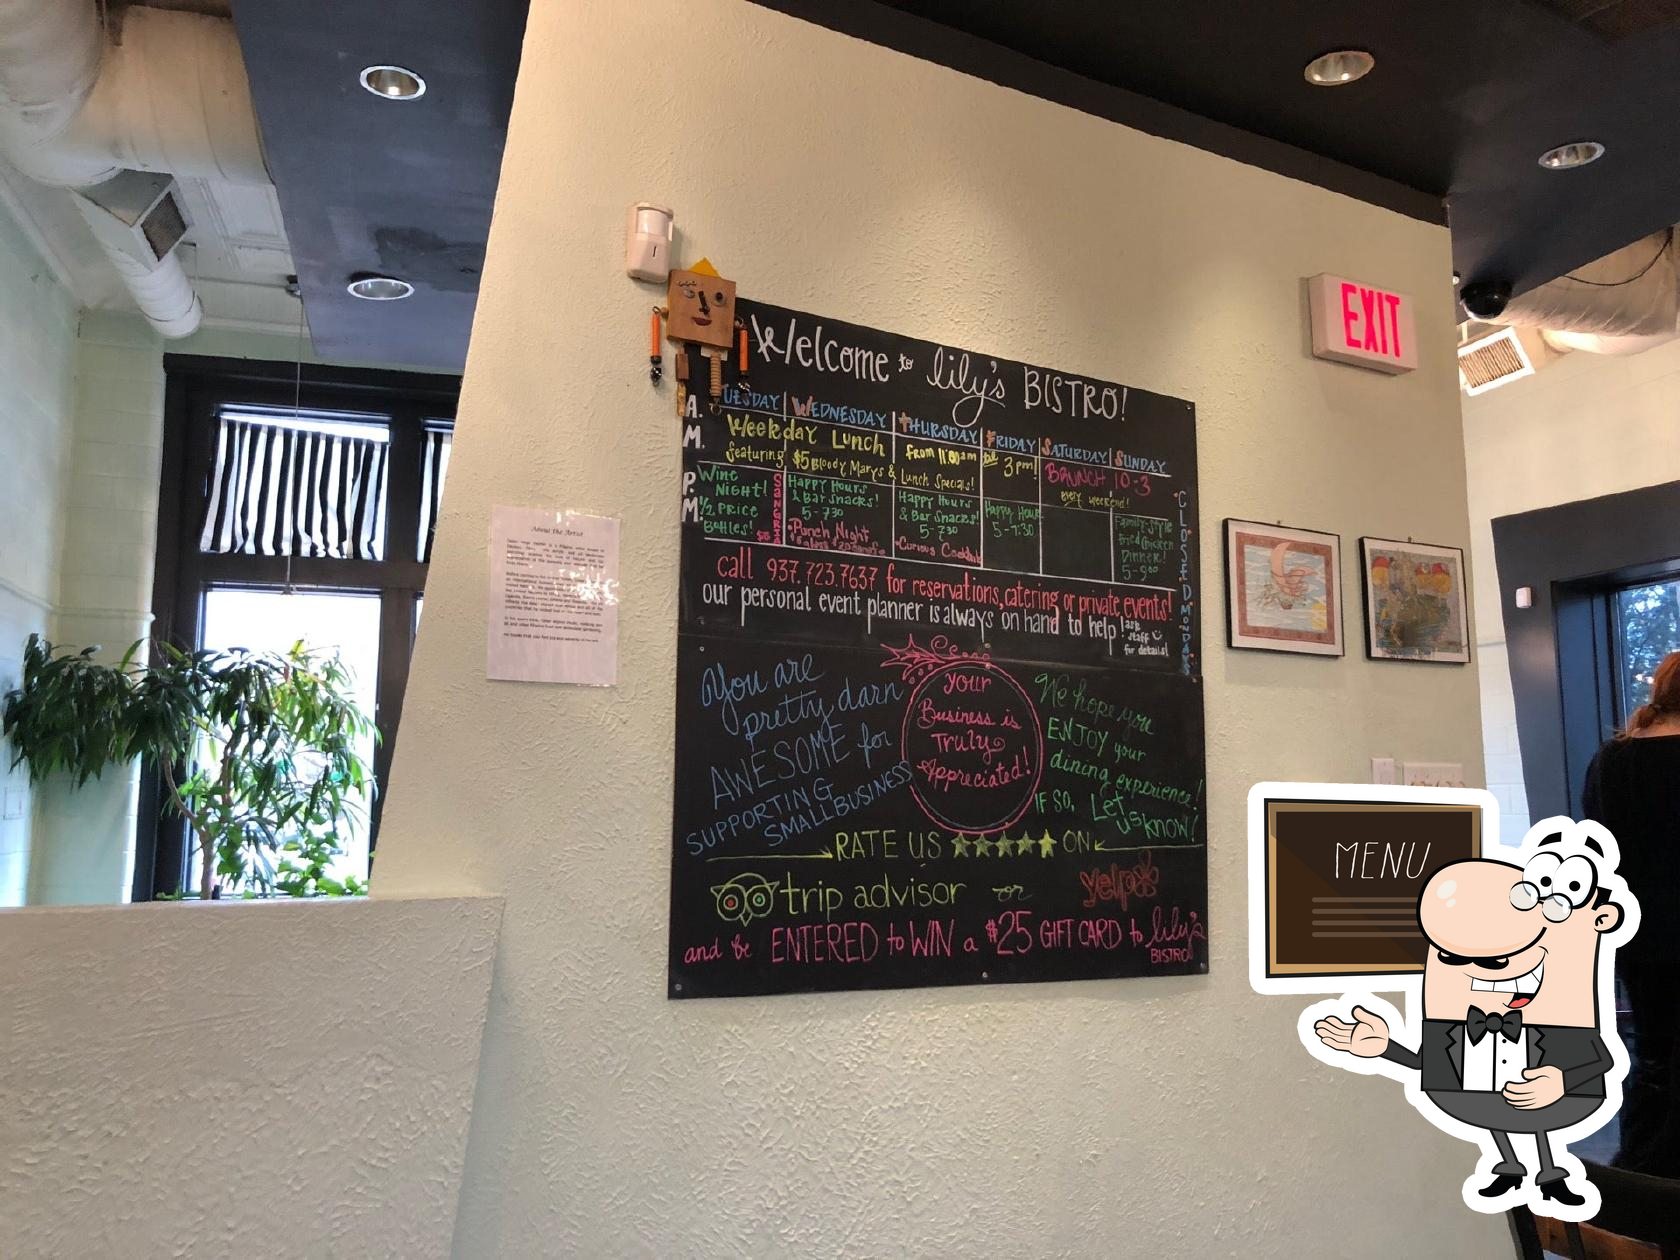 About the Artist
Welcome to lily's BISTRO!
TUESDAY WEDNESDAY THURSDAY FRIDAY SATURDAY SUNDAY
A.M.
Weekday Lunch from 11:00am til 3pm!
featuring $5 Bloody Marys & Lunch Specials!
BRUNCH 10-3
every weekend!
P.M.
Wine
Night!
1/2 Price
Bottles!
SANGRIA
$5
Happy Hours
& Bar Snacks!
5-730
Punch Night
Happy Hours
& Bar Snacks!
5-730
Curious Cocktails
Happy Hours
5-7:30
Family-Style
Fried Chicken
Dinner!
5-9
CLOSED MONDAYS
call 937.723.7637 for reservations, catering or private events!
our personal event planner is always on hand to help!
ask
staff
for details!
You are
pretty darn
AWESOME for
SUPPORTING
SMALL BUSINESS
your
Business is
Truly
Appreciated!
We hope you
ENJOY your
dining experience!
IF SO, Let
us know!
RATE US ON
trip advisor or yelp
and be ENTERED to WIN a $25 GIFT CARD to lily's
BISTRO
EXIT
MENU